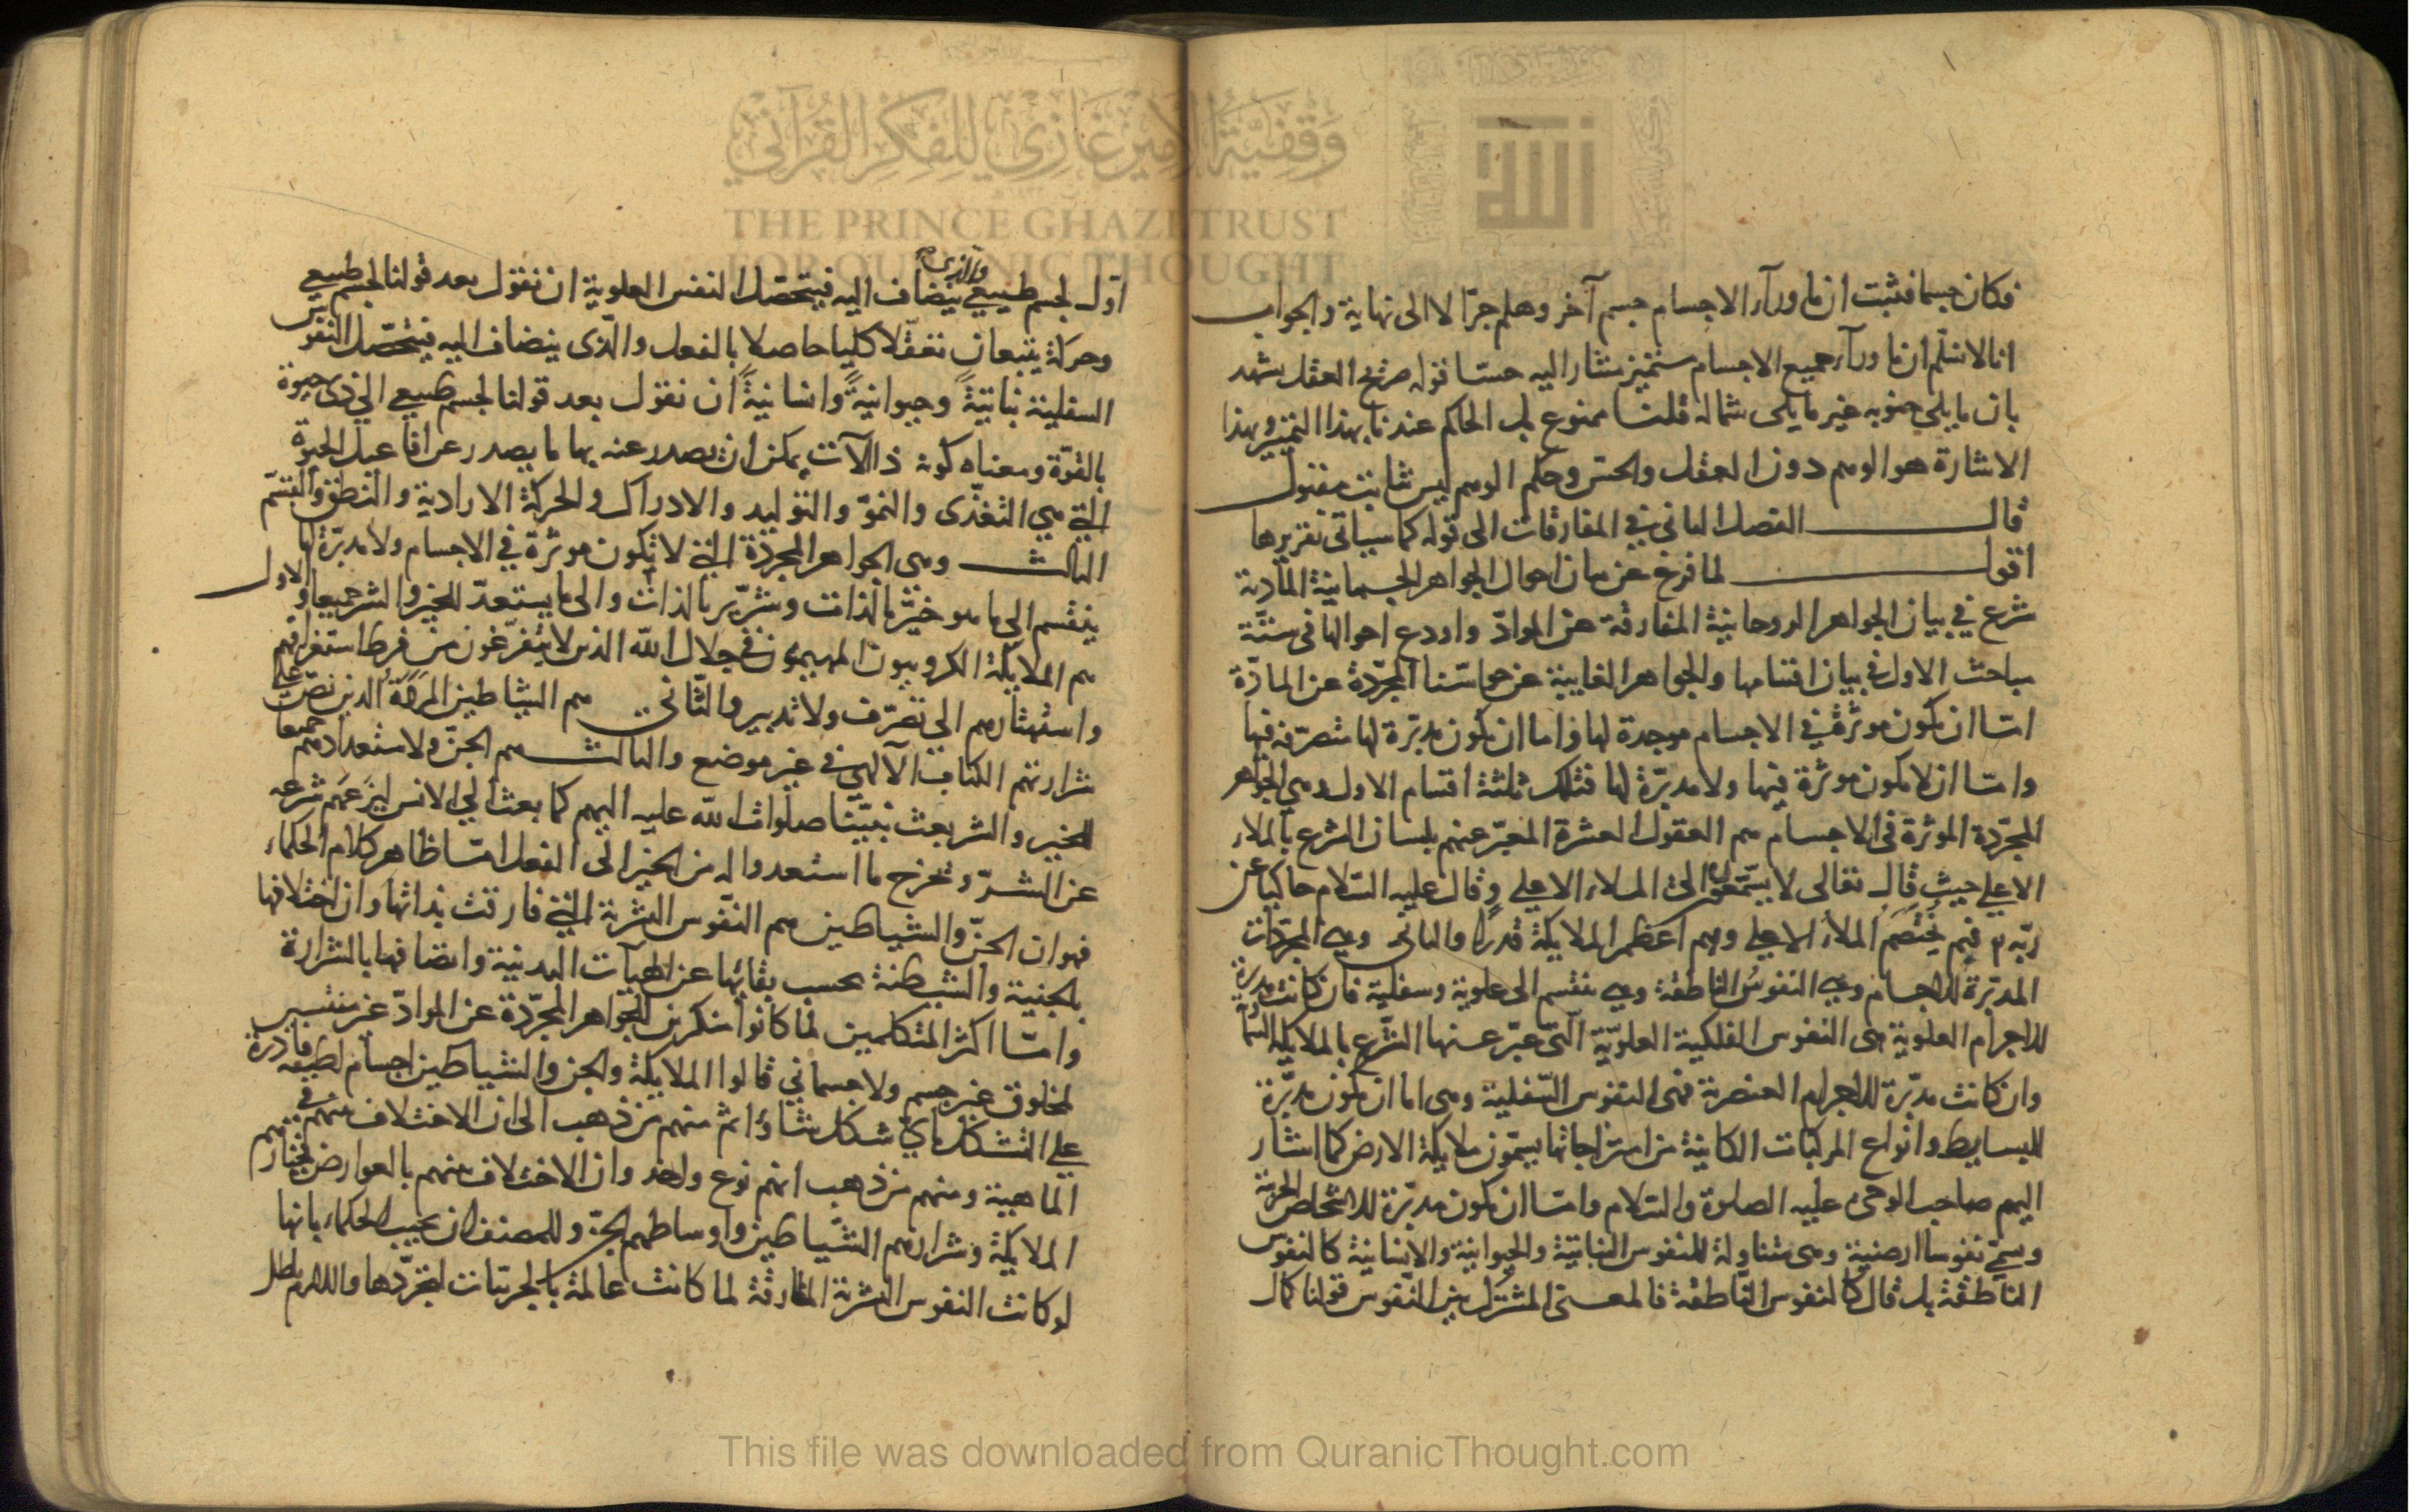 فكان جسما فثبت ان ما ورآء الاجسام جسم آخر وهلم جرّا لا الى نهاية والجواب
انا لا نسلّم ان ما ورآء جميع الاجسام متميز مشار اليه حسّا قوله صريح العقل يشهد
بان ما يلي جنوبه غير ما يلى شماله قلنا ممنوع بل الحاكم عندنا بهذا التميّز وبهذا
الاشارة هو الوهم دون العقل والحس وحكم الوهم ليس ثابت مقبول
قال الفصل الثانى في المفارقات الى قوله كما سيأتى تقريرها
اقول لما فرغ عن بيان احوال الجواهر الجسمانية المادية
شرع في بيان الجواهر الروحانية المفارقة عن الموادّ واودع احوالها فى ستّة
مباحث الاول في بيان اقسامها والجواهر الغايبة عن حواسّنا المجرّدة عن المادّة
امّا ان يكون موثّرة في الاجسام موجدة لها واما ان يكون مدبّرة لها متصرّفة فيها
وامّا ان لا يكون موثّرة فيها ولا مدبّرة لها فتلك ثلثة اقسام الاول وهى الجواهر
المجرّدة الموثرة فى الاجسام هم العقول العشرة المعبّر عنهم بلسان الشرع بالملاء
الاعلي حيث قال تعالى لا يسّمّعون الى الملاء الاعلي وقال عليه السّلام حاكيا عن
ربّه فيم يختصم الملاء الاعلي وهم اعظم الملايكة قدرًا والثانى وهى المجرّدات
المدبّرة للاجسام وهي النفوس الناطقة وهي ينقسم الى علوية وسفلية فان كانت مدبّرة
للاجرام العلوية هى النفوس الفلكية العلويّة الّتى عبّر عنها الشّرع بالملايكة السّمآ
وان كانت مدبّرة للاجرام العنصرية فهى النفوس السّفلية وهى اما ان يكون مدبّرة
للبسايط وانواع المركبات الكاينة من امتزاجاتها يسمّون ملايكة الارض كما اشار
اليهم صاحب الوحى عليه الصلوة والسّلام وامّا ان يكون مدبّرة للاشخاص الجزئية
وسمّي نفوسا ارضية وهى متناولة للنفوس النباتيّة والحيوانيّة والانسانية كالنفوس
الناطقة بل قال كالنفوس النّاطقة فالمعنى المشترك بين النّفوس قولنا كمال
اوّل لجسم طبيعي والذى ينضاف اليه فيتحصّل النفس العلوية ان نقول بعد قولنا لجسم طبيعي
وحركة يتبعان تعقّلا كليا حاصلا بالفعل والّذى ينضاف اليه فيتحصّل النفوس
السفلية نباتيّةً وحيوانيّةً وانسانيّةً ان نقول بعد قولنا لجسم طبيعي الى ذى حيوة
بالقوّة ومعناه كونه ذا آلات يمكن ان يصدر عنه بها ما يصدر عن افاعيل الحيوة
التي هي التغذّى والنموّ والتوليد والادراك والحركة الارادية والنطق والقسم
الثالث وهى الجواهر المجرّدة التي لا يكون موثرة في الاجسام ولا مدبّرة لها
ينقسم الى ما هو خيّر بالذات وشرّير بالذات والى ما يستعدّ للخير والشر جميعا والاول
هم الملايكة الكروبيون المهيمون في جلال اللّه الذين لا يتفرّغون من فرط استغراقهم
واستهتارهم الى تصرّف ولا تدبير والثّانى هم الشياطين المردة الذين نصّ على
شرارتهم الكتاب الآلهى في غير موضع والثالث هم الجنّ ولاستعدادهم جميعا
للخير والشر بعث نبيّنا صلوات اللّه عليه اليهم كما بعث الي الانس ليزعهم شرعه
عن الشرّ وتخرج ما استعدوا له من الخير الى الفعل امّا ظاهر كلام الحكماء
فهو ان الجنّ والشياطين هم النّفوس البشرية التي فارقت بذاتها وان اختلافها
بالجنية والشيطنة بحسب بقائها عن الهيآت البدنية واتصافها بالشرارة
وامّا اكثر المتكلمين لما كانوا منكرين للجواهر المجرّدة عن الموادّ غير مثبتين
لمخلوق غير جسم ولا جسماني قالوا الملايكة والجن والشياطين اجسام لطيفة قادرة
علي التشكّل باىّ شكل شاؤا ثم منهم من ذهب الى ان الاختلاف منهم في
الماهية ومنهم من ذهب انهم نوع واحد وان الاختلاف منهم بالعوارض فخيارهم هم
الملايكة وشرارهم الشّياطين واوساطهم الجنّ وللمصنف ان يجيب الحكماء بانها
لو كانت النفوس البشرية المفارقة لما كانت عالمة بالجزئيات لتجرّدها واللازم باطل
وقفية الأمير غازي للفكر القرآني
THE PRINCE GHAZI TRUST
FOR QURANIC THOUGHT
الله
This file was downloaded from QuranicThought.com